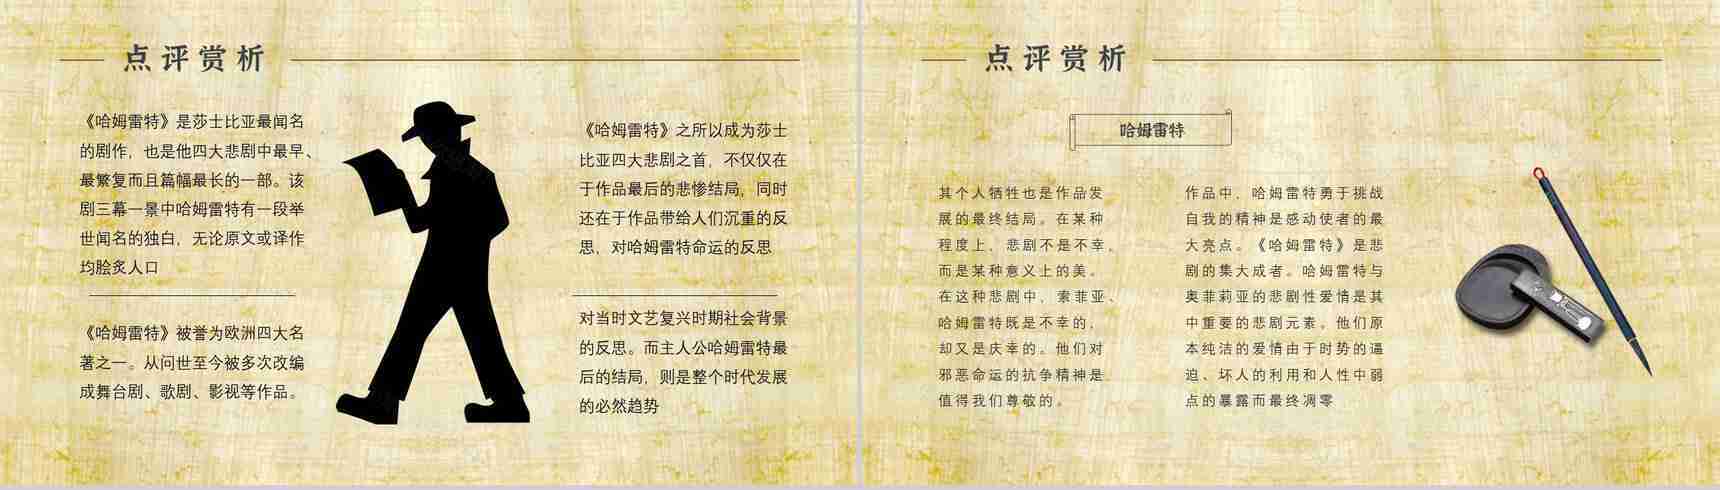 点评赏析
《哈姆雷特》是莎士比亚最闻名
的剧作，也是他四大悲剧中最早、
最繁复而且篇幅最长的一部。该
剧三幕一景中哈姆雷特有一段举
世闻名的独白，无论原文或译作
均脍炙人口
《哈姆雷特》被誉为欧洲四大名
著之一。从问世至今被多次改编
成舞台剧、歌剧、影视等作品。
《哈姆雷特》之所以成为莎士
比亚四大悲剧之首，不仅仅在
于作品最后的悲惨结局，同时
还在于作品带给人们沉重的反
思，对哈姆雷特命运的反思
对当时文艺复兴时期社会背景
的反思。而主人公哈姆雷特最
后的结局，则是整个时代发展
的必然趋势
点评赏析
哈姆雷特
其个人牺牲也是作品发
展的最终结局。在某种
程度上，悲剧不是不幸，
而是某种意义上的美。
在这种悲剧中，索菲亚、
哈姆雷特既是不幸的，
却又是庆幸的。他们对
邪恶命运的抗争精神是
值得我们尊敬的。
作品中，哈姆雷特勇于挑战
自我的精神是感动使者的最
大亮点。《哈姆雷特》是悲
剧的集大成者。哈姆雷特与
奥菲莉亚的悲剧性爱情是其
中重要的悲剧元素。他们原
本纯洁的爱情由于时势的逼
迫、坏人的利用和人性中弱
点的暴露而最终凋零